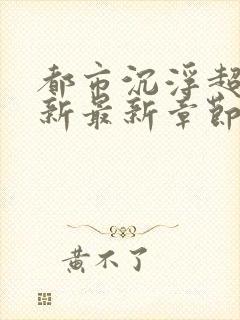 都市沉浮超
新最新章節
黄不了